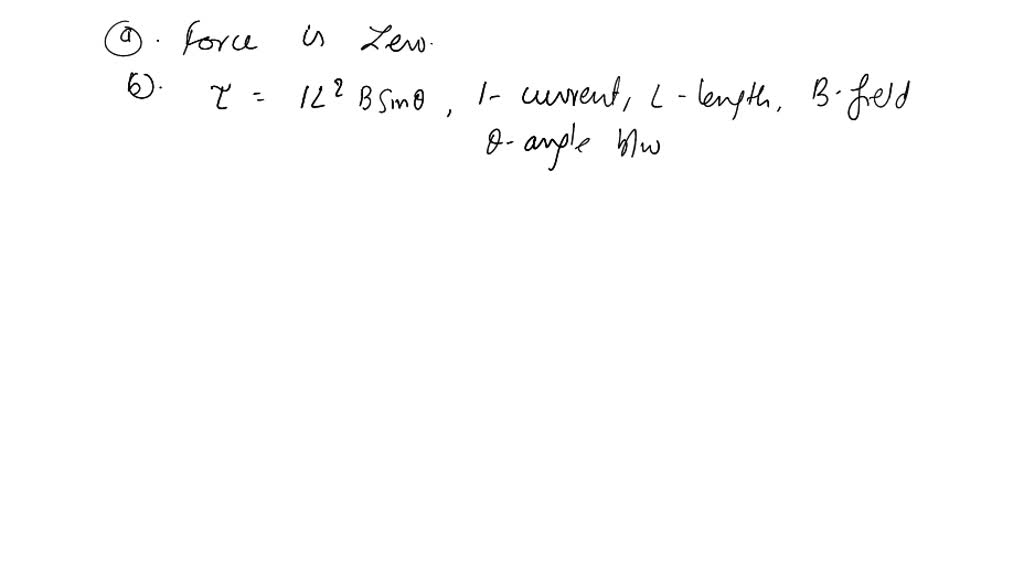 (a). Force is Zero.
b). τ = IL² B Sinθ, I- current, L - length, B - field
θ- angle b/w